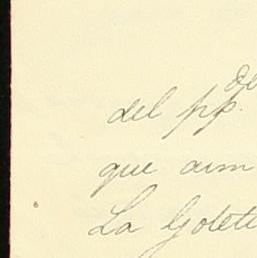 de
del pp.
que aun
La Golet